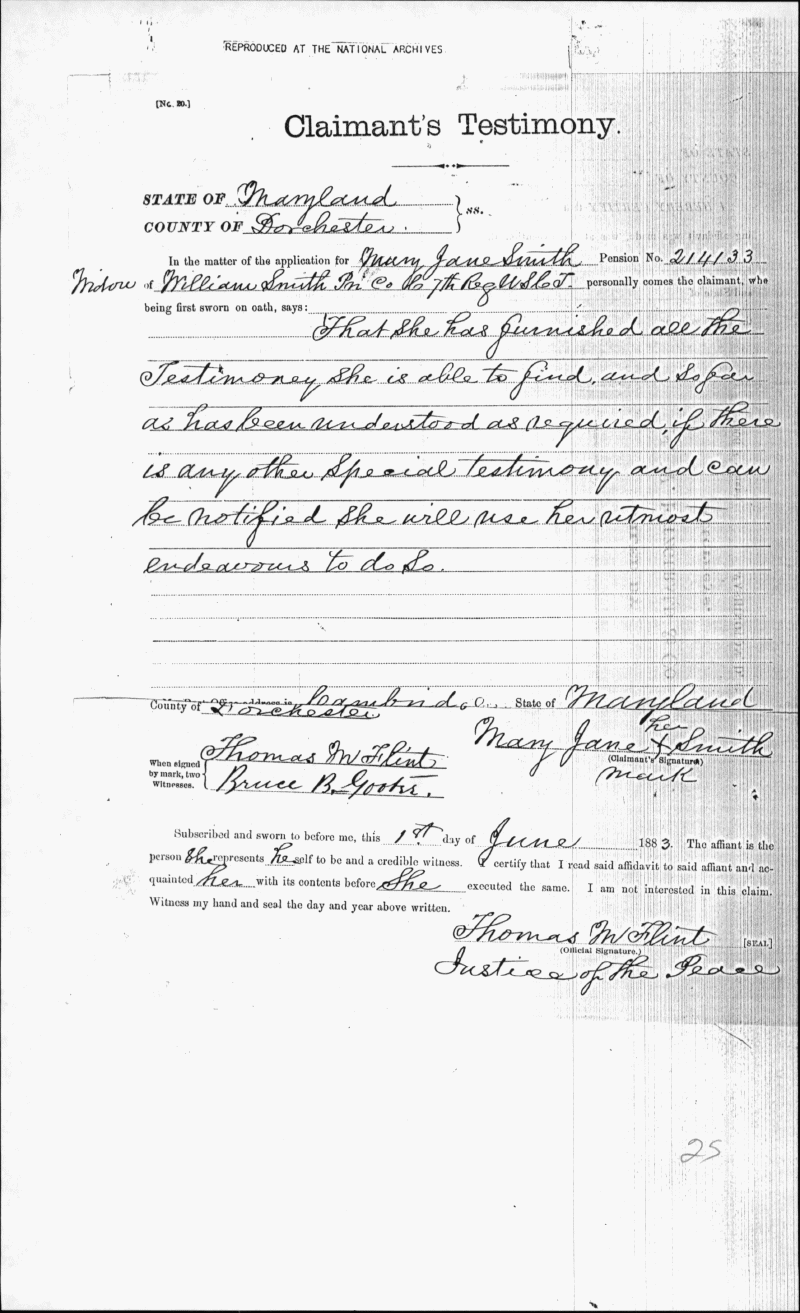 REPRODUCED AT THE NATIONAL ARCHIVES
[No. 20.]
Claimant's Testimony.
STATE OF Maryland
COUNTY OF Dorchester. } ss.
In the matter of the application for Mary Jane Smith Pension No. 214133
Widow of William Smith Co 7th Reg U.S.C.T. personally comes the claimant, who
being first sworn on oath, says:
That she has furnished all the
Testimoney she is able to find, and so far
as has been understood as required, if there
is any other Special testimony and can
be notified she will use her utmost
endeavours to do so.
County of Dorchester State of Maryland
Mary Jane her X Smith
(Claimant's Signature)
mark
When signed by mark, two Witnesses. {
Thomas M Flint
Bruce B.
Subscribed and sworn to before me, this 1st day of June 1883. The affiant is the
person She represents herself to be and a credible witness. I certify that I read said affidavit to said affiant and ac-
quainted her with its contents before She executed the same. I am not interested in this claim.
Witness my hand and seal the day and year above written.
Thomas M Flint [SEAL]
(Official Signature.)
Justice of the Peace
25